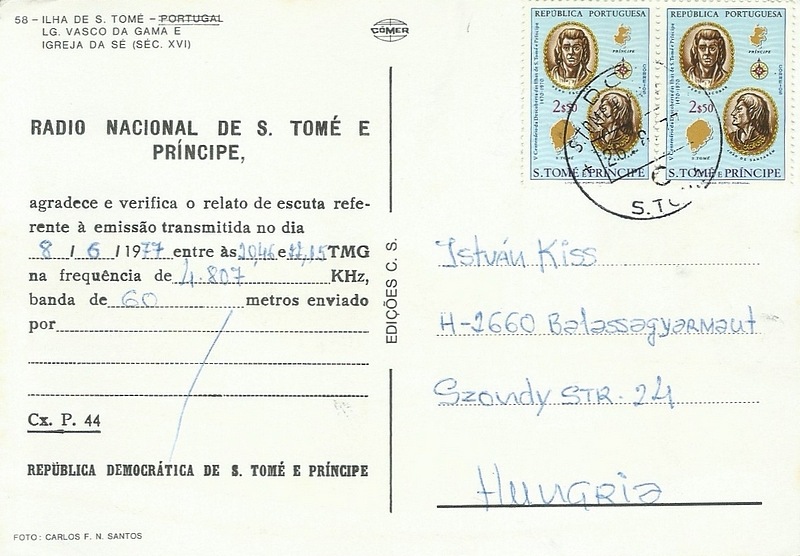 58 – ILHA DE S. TOMÉ – PORTUGAL
LG. VASCO DA GAMA E
IGREJA DA SÉ (SÉC. XVI)
CÓMER
RADIO NACIONAL DE S. TOMÉ E
PRÍNCIPE,
agradece e verifica o relato de escuta refe-
rente à emissão transmitida no dia
8 / 6 / 1977 entre às 20,46 e TMG
na frequência de 4.807 KHz,
banda de 60 metros enviado
por
Cx. P. 44
REPÚBLICA DEMOCRÁTICA DE S. TOMÉ E PRÍNCIPE
FOTO: CARLOS F. N. SANTOS
EDIÇÕES C. S.
REPÚBLICA PORTUGUESA
2$50
S. TOMÉ E PRÍNCIPE
REPÚBLICA PORTUGUESA
2$50
S. TOMÉ E PRÍNCIPE
István Kiss
H-2660 Balassagyarmaut
Szondy STR. 24
Hungria